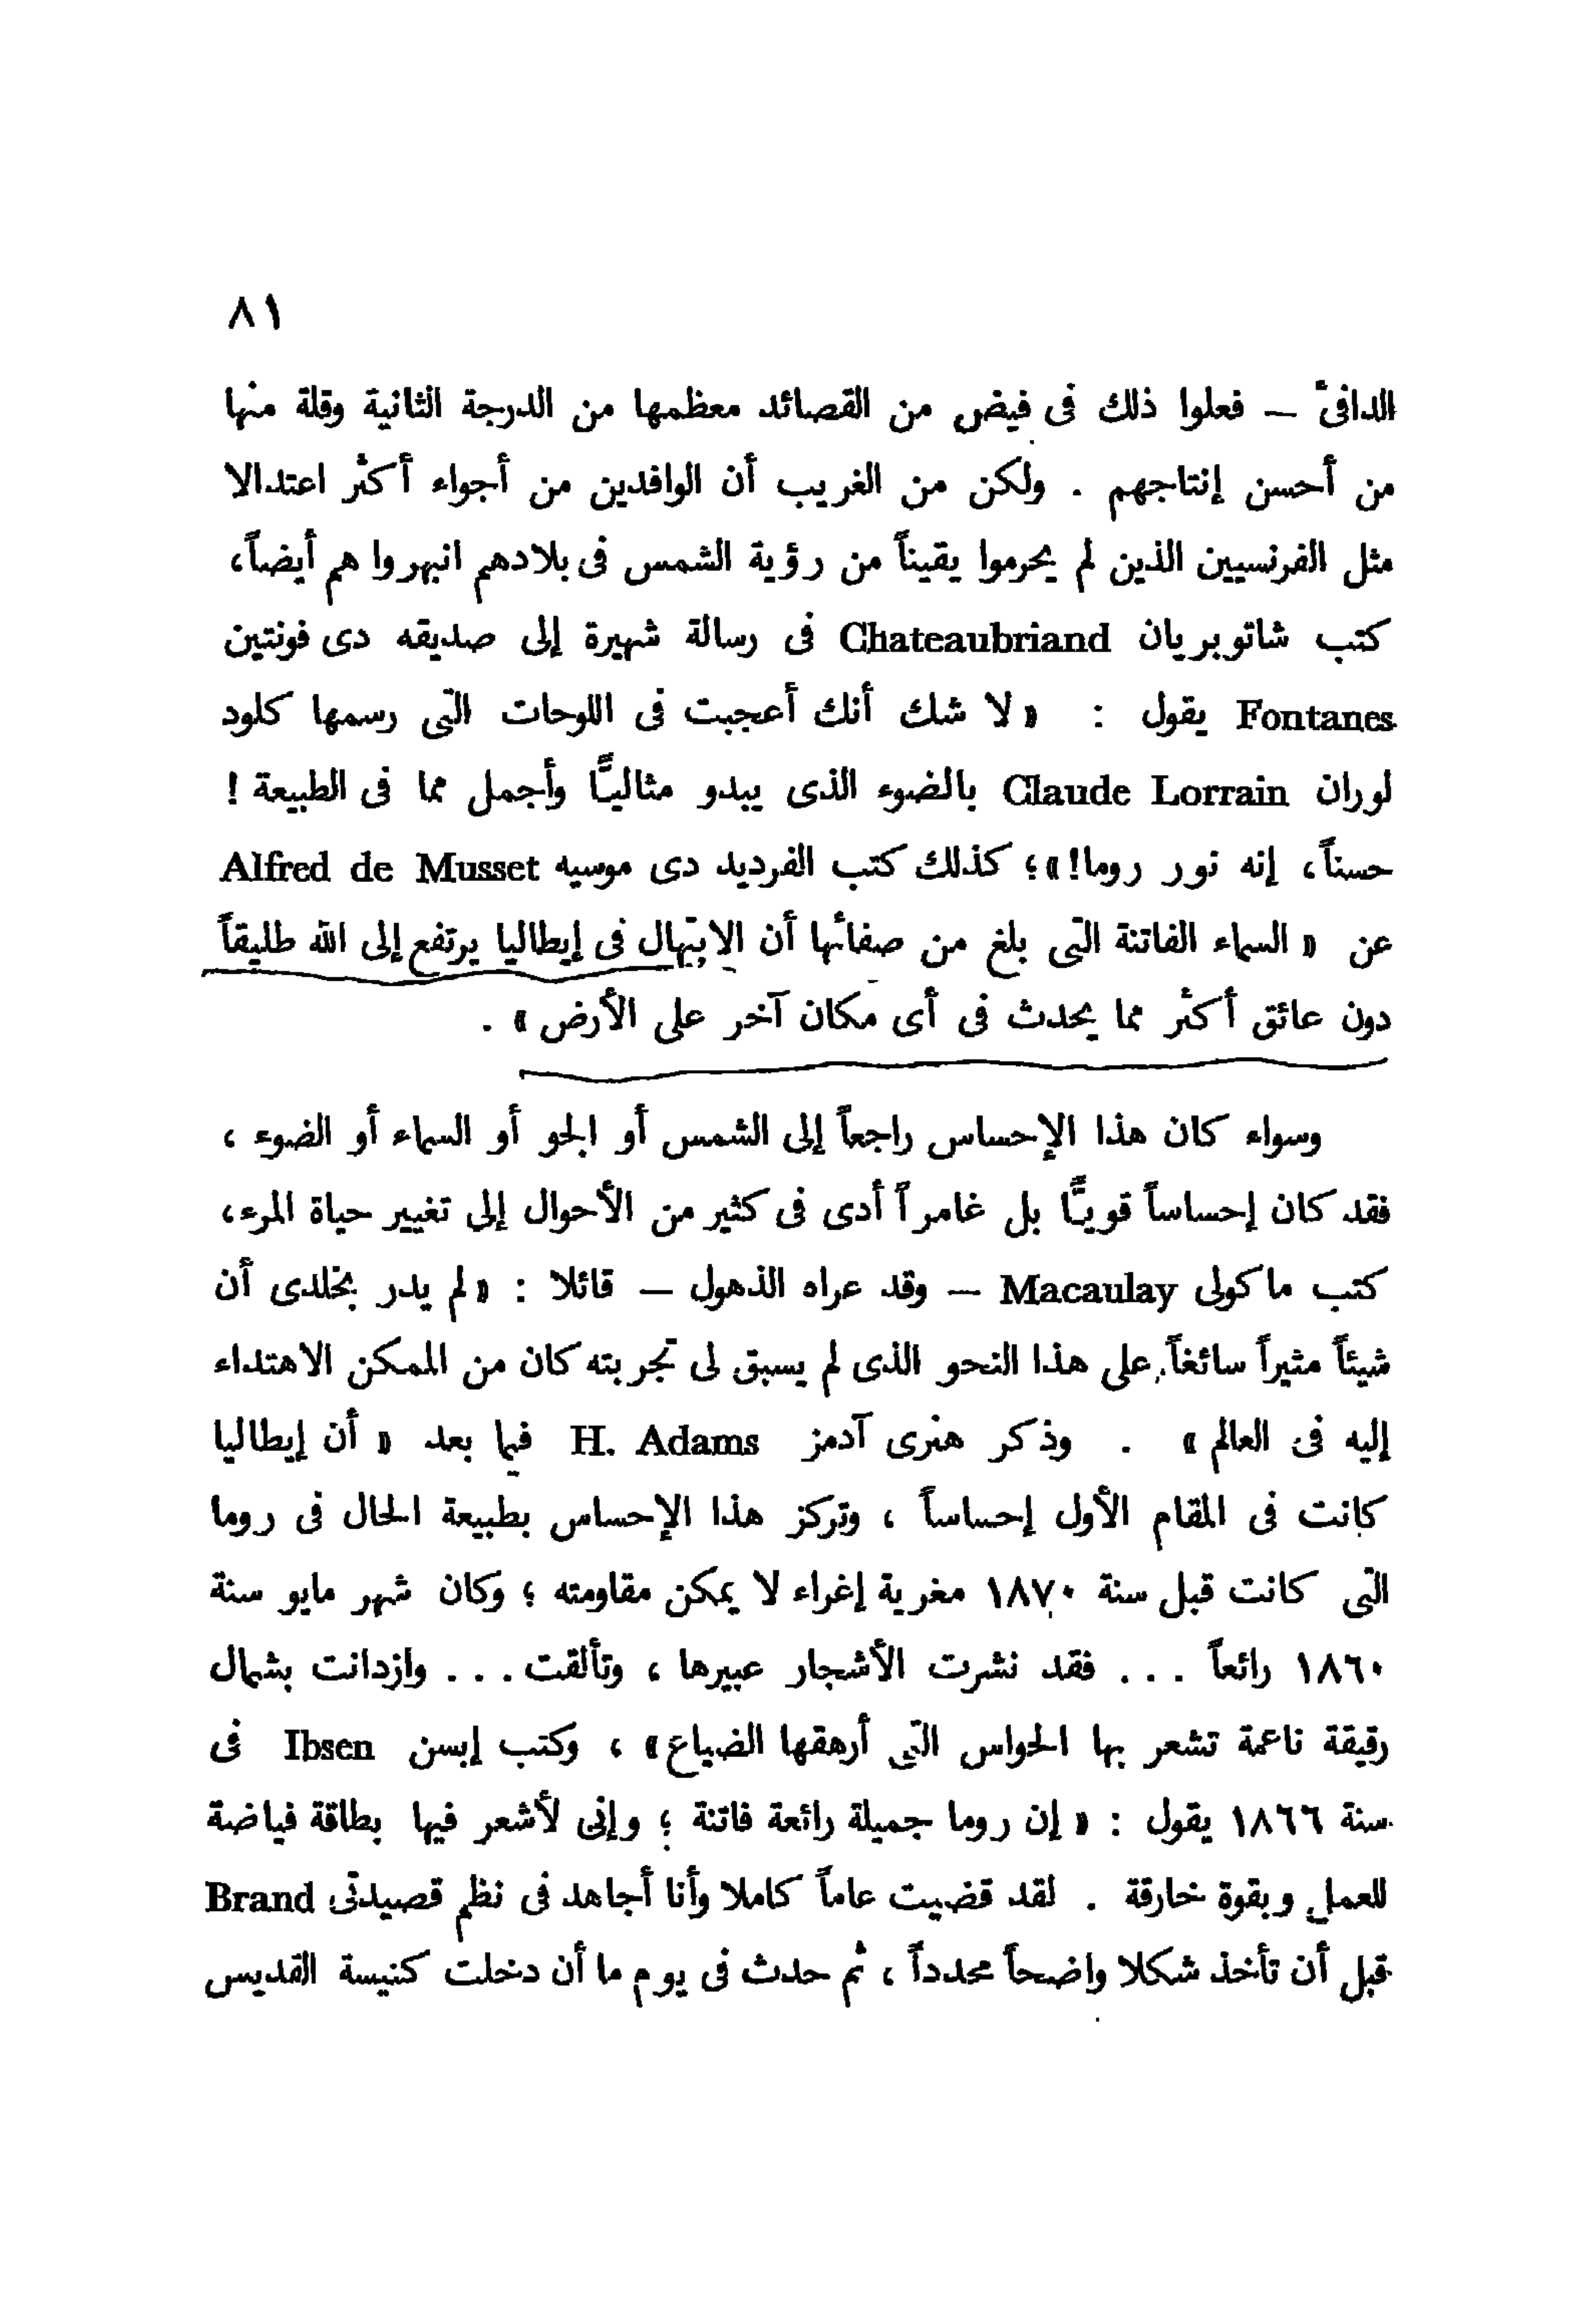 ٨١
الدافئ – فعلوا ذلك فى فيض من القصائد معظمها من الدرجة الثانية وقلة منها
من أحسن إنتاجهم . ولكن من الغريب أن الوافدين من أجواء أكثر اعتدالا
مثل الفرنسيين الذين لم يحرموا يقيناً من رؤية الشمس فى بلادهم انبهروا هم أيضاً،
كتب شاتوبريان Chateaubriand فى رسالة شهيرة إلى صديقه دى فونتين
Fontanes يقول : « لا شك أنك أعجبت فى اللوحات التى رسمها كلود
لوران Claude Lorrain بالضوء الذى يبدو مثاليًّا وأجمل مما فى الطبيعة !
حسناً، إنه نور روما!»؛ كذلك كتب الفرديد دى موسيه Alfred de Musset
عن « السماء الفاتنة التى بلغ من صفائها أن الابتهال فى إيطاليا يرتفع إلى الله طليقاً
دون عائق أكثر مما يحدث فى أى مكان آخر على الأرض » .
وسواء كان هذا الإحساس راجعاً إلى الشمس أو الجو أو السماء أو الضوء ،
فقد كان إحساساً قويًّا بل غامراً أدى فى كثير من الأحوال إلى تغيير حياة المرء،
كتب ماكولى Macaulay – وقد عراه الذهول – قائلا : « لم يدر بخلدى أن
شيئاً مثيراً سائغاً على هذا النحو الذى لم يسبق لى تجربته كان من الممكن الاهتداء
إليه فى العالم » . وذكر هنرى آدمز H. Adams فيما بعد « أن إيطاليا
كانت فى المقام الأول إحساساً ، وتركز هذا الإحساس بطبيعة الحال فى روما
التى كانت قبل سنة ١٨٧٠ مغرية إغراء لا يمكن مقاومته ؛ وكان شهر مايو سنة
١٨٦٠ رائعاً . . . فقد نشرت الأشجار عبيرها ، وتألقت . . . وازدانت بشمال
رقيقة ناعمة تشعر بها الحواس التى أرهقها الضياع» ، وكتب إبسن Ibsen فى
سنة ١٨٦٦ يقول : « إن روما جميلة رائعة فاتنة ؛ وإنى لأشعر فيها بطاقة فياضة
للعمل وبقوة خارقة . لقد قضيت عاماً كاملا وأنا أجاهد فى نظم قصيدتى Brand
قبل أن تأخذ شكلا واضحاً محدداً ، ثم حدث فى يوم ما أن دخلت كنيسة القديس